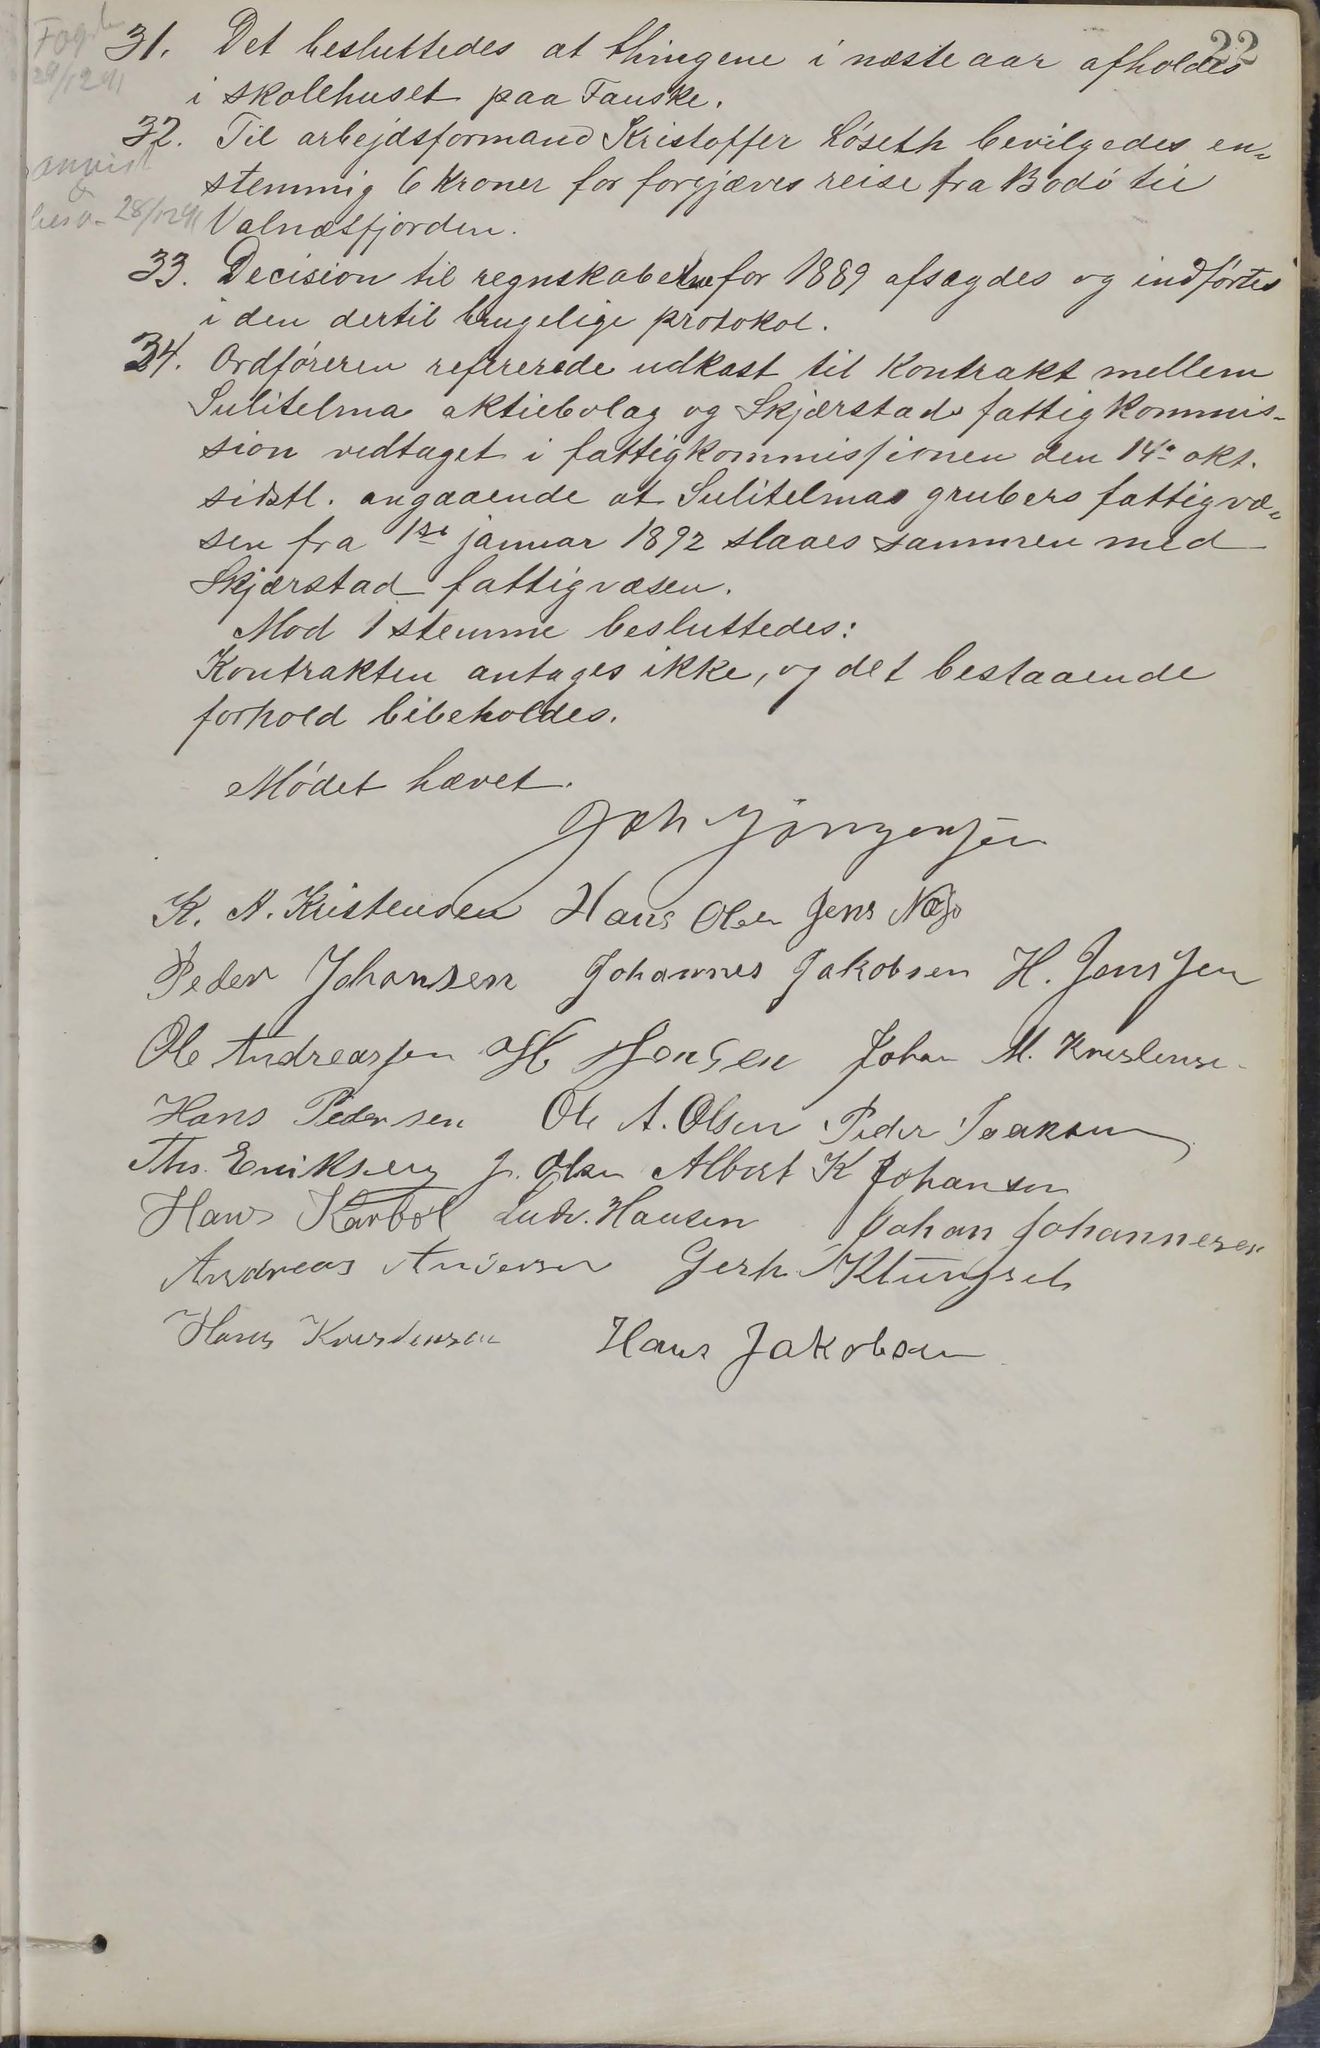 22
31. Det besluttedes at thingene i næste aar afholdes
i skolehuset paa Fauske.
Fogden
29/12 91
32. Til arbejdsformand Kristoffer Løseth bevilgedes en-
stemmig 6 kroner for forgjæves reise fra Bodø til
Valnæsfjorden.
anvist
28/12 91
33. Decision til regnskaberne for 1889 afsagdes og indførtes
i den dertil brugelige protokol.
34. Ordføreren refererede udkast til Kontrakt mellem
Sulitelma aktiebolag og Skjærstad fattigkommis-
sion vedtaget i fattigkommissionen den 14de okt.
sidstl. angaaende at Sulitelmas grubers fattigvæ-
sen fra 1ste januar 1892 slaaes sammen med
Skjærstad fattigvæsen.
Mod 1 stemme besluttedes:
Kontrakten antages ikke, og det bestaaende
forhold bibeholdes.
Mødet hævet.
Joh Jörgensen
K. A. Kristensen Hans Olsen Jens Næss
Peder Johansen Johannes Jakobsen H. Jenssen
Ole Andreassen H Hansen Johan M. Kristensen
Hans Pedersen Ole A. Olsen Peder Isaksen
Ths. Eriksen J. Olsen Albert K Johansen
Hans Karbøl Ludv. Hansen Johan Johannesen
Andreas Andersen Gerh. Klungset
Hans Kristensen Hans Jakobsen